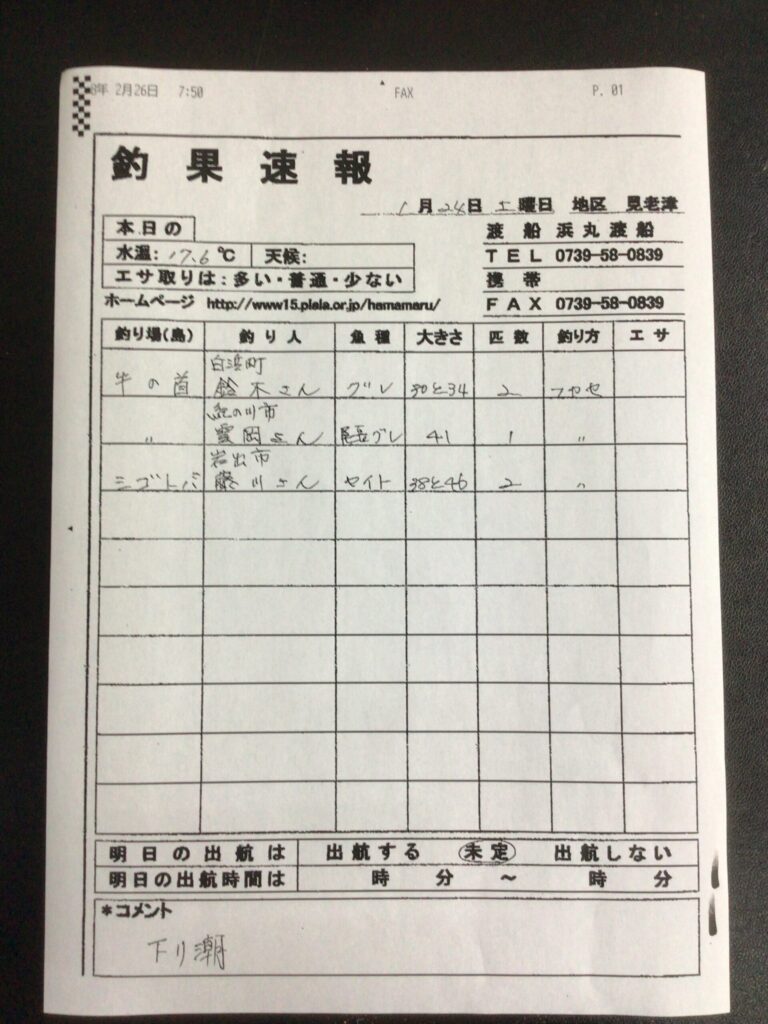 8年 2月26日 7:50 FAX P. 01
釣果速報
1月24日 土曜日 地区 見老津
本日の
水温: 17.6℃ 天候:
エサ取りは:多い・普通・少ない
ホームページ http://www15.plala.or.jp/hamamaru/
渡船 浜丸渡船
TEL 0739-58-0839
携帯
FAX 0739-58-0839
釣り場(島) 釣り人 魚種 大きさ 匹数 釣り方 エサ
白浜町
牛の首 鈴木さん グレ 30と34 2 フカセ
紀の川市
〃 岡さん 尾長グレ 41 1 〃
岩出市
シゴトバ 藤川さん セイト 38と46 2 〃
明日の出航は 出航する 未定 出航しない
明日の出航時間は 時 分 ~ 時 分
*コメント
下リ潮